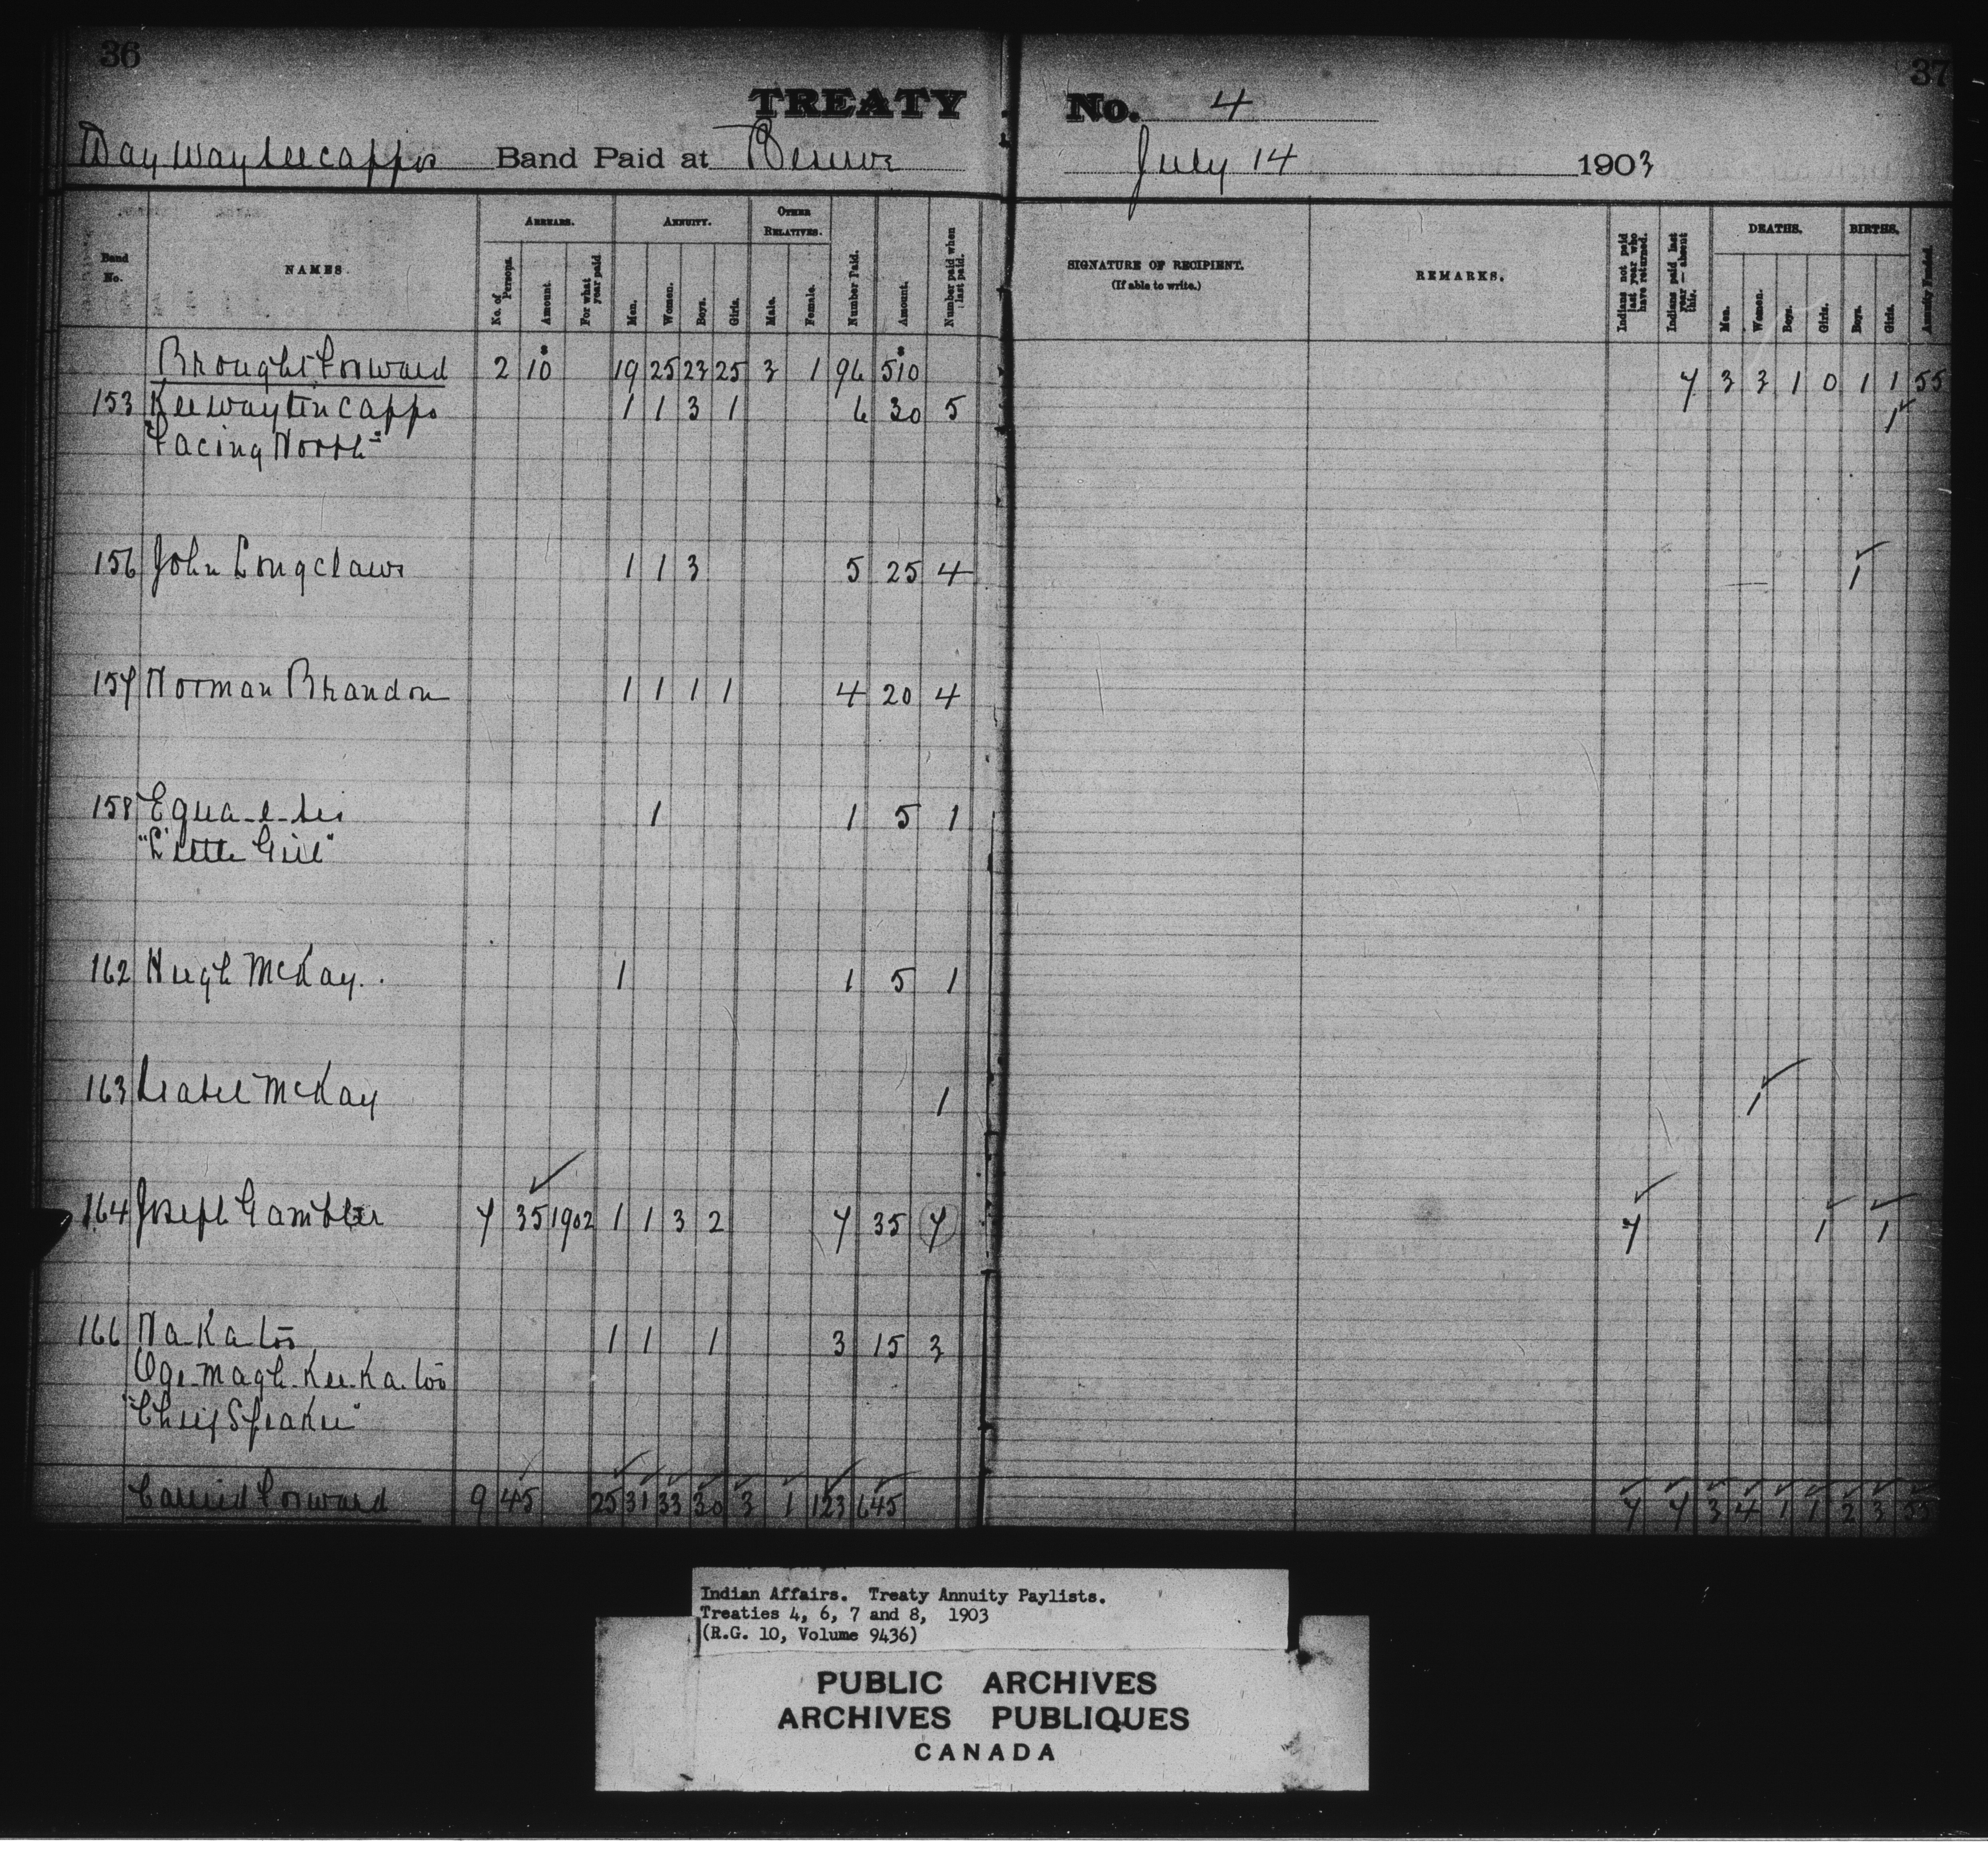 36
37
TREATY No. 4
Way way see cappo Band Paid at Reserve July 14 1903
Band No.
NAMES.
ARREARS.
No. of Persons.
Amount
For what year paid
ANNUITY.
Men.
Women.
Boys.
Girls.
OTHER RELATIVES.
Male.
Female.
Number Paid.
Amount.
Number paid when last paid.
SIGNATURE OF RECIPIENT.
(If able to write.)
REMARKS.
Indians not paid last year who have returned.
Indians paid last year — absent this.
DEATHS.
Men.
Women.
Boys.
Girls.
BIRTHS.
Boys.
Girls.
Annuity Funded.
Brought Forward 2 10 19 25 23 25 3 1 96 510 7 3 3 1 0 1 1 55
153 Keewaytincappo 1 1 3 1 6 30 5 1
"Facing North"
156 John Longclaws 1 1 3 5 25 4 1
157 Norman Brandon 1 1 1 1 4 20 4
158 Equa-e-sis 1 1 5 1
"Little Girl"
162 Hugh McKay. 1 1 5 1
163 Isabel McKay 1 1
164 Joseph Gambler 7 35 1902 1 1 3 2 7 35 7 7 1 1
166 Na Ka too 1 1 1 3 15 3
Oge-magh-Kee-Ka-too
"Chief Speaker"
Carried Forward 9 45 25 31 33 30 3 1 123 645 7 7 3 4 1 1 2 3 55
Indian Affairs. Treaty Annuity Paylists.
Treaties 4, 6, 7 and 8, 1903
(R.G. 10, Volume 9436)
PUBLIC ARCHIVES
ARCHIVES PUBLIQUES
CANADA